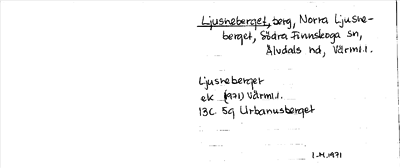 Ljusneberget, berg, Norra Ljusne-
berget, Södra Finnskoga sn,
Älvdals hd, Värml.l.
Ljusneberget
ek (1971) Värml.l.
13C 5g Urbanusberget
1.M.1971